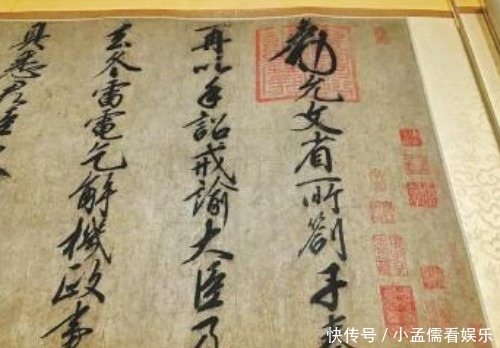 勑允文省所劄子奏
再以手詔戒諭大臣乃
去冬雷電乞解機政事
具悉
快传号/小孟儒看娱乐